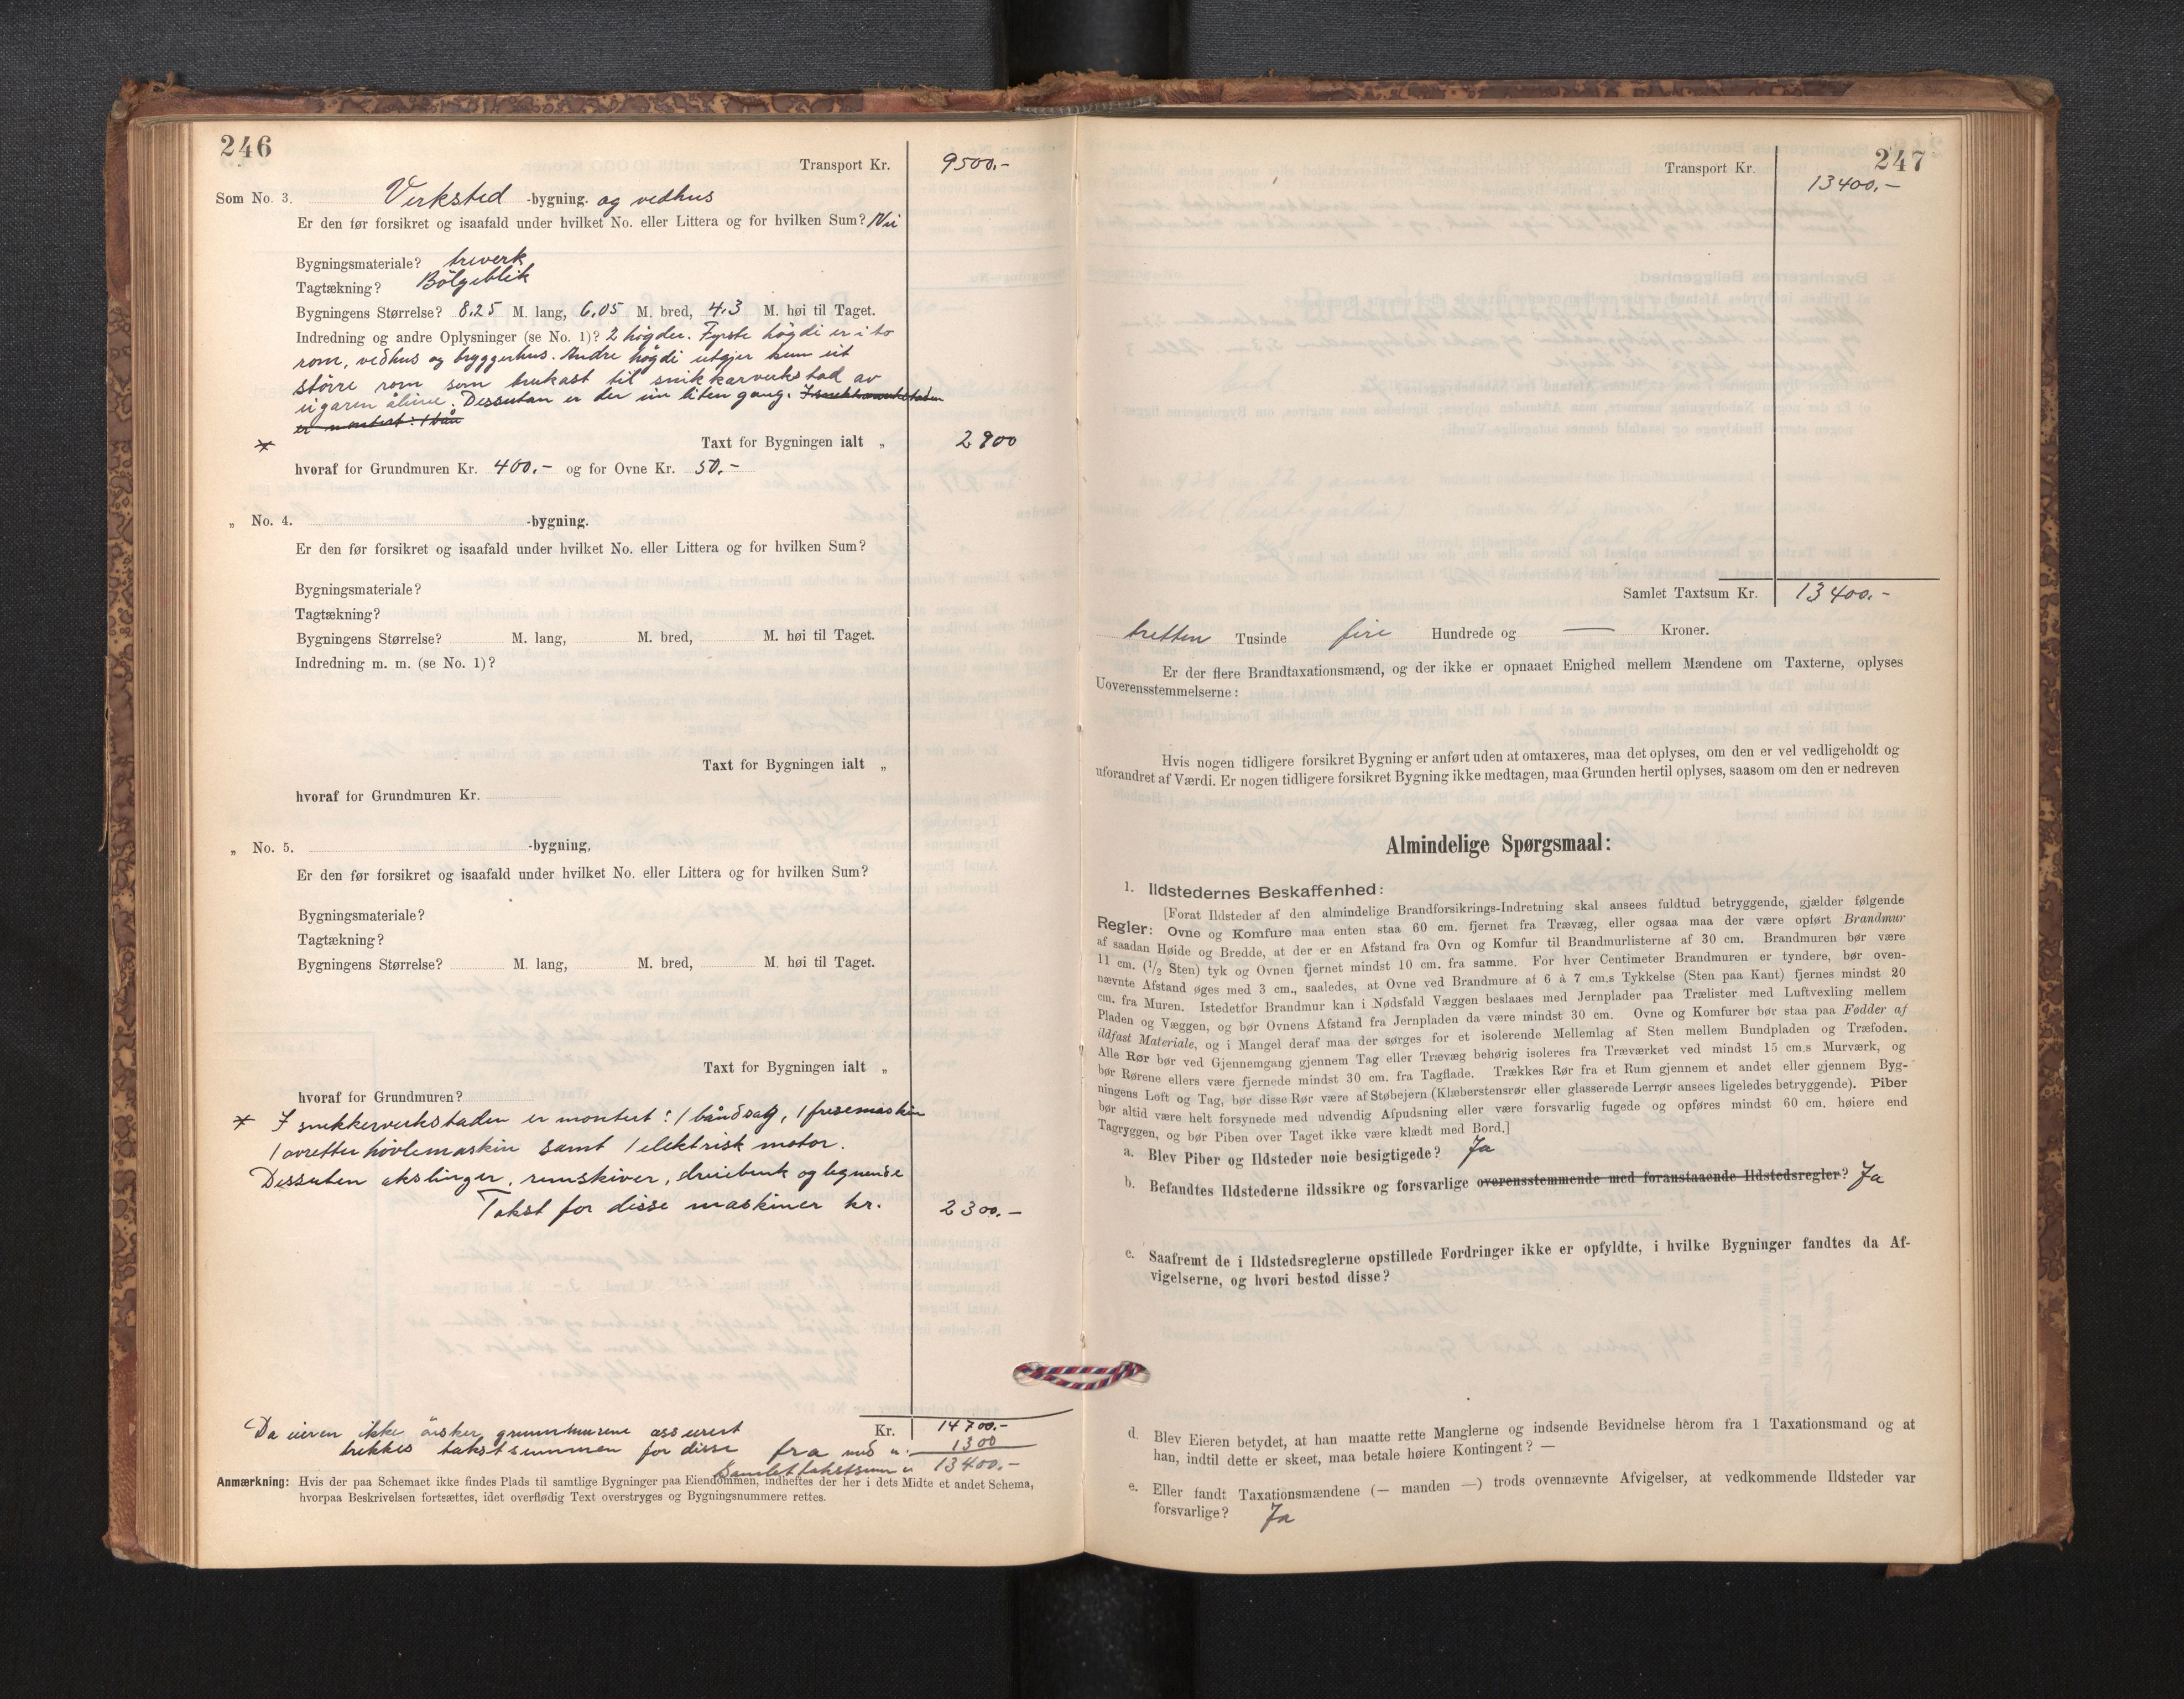 246
Transport Kr. 9500.-
Som No. 3. Verksted -bygning. og vedhus
Er den før forsikret og isaafald under hvilket No. eller Littera og for hvilken Sum? Nei
Bygningsmateriale? treverk
Tagtækning? Bölgeblik
Bygningens Størrelse? 8.25 M. lang, 6.05 M. bred, 4.3 M. høi til Taget.
Indredning og andre Oplysninger (se No. 1)? 2 högder. Fyrste högdi er i to
rom, vedhus og bryggerhus. Andre högdi utgjer kun eit
större rom som brukast til snikkarverkstad av
eigaren åleine. Dessutan er der ein liten gang. I snekkerverkstaden
er montert: 1 bån
* Taxt for Bygningen ialt „ 2900
hvoraf for Grundmuren Kr. 400.- og for Ovne Kr. 50.-
„ No. 4. -bygning.
Er den før forsikret og isaafald under hvilket No. eller Littera og for hvilken Sum?
Bygningsmateriale?
Tagtækning?
Bygningens Størrelse? M. lang, M. bred, M. høi til Taget.
Indredning m. m. (se No. 1)?
Taxt for Bygningen ialt „
hvoraf for Grundmuren Kr.
„ No. 5. -bygning,
Er den før forsikret og isaafald under hvilket No. eller Littera og for hvilken Sum?
Bygningsmateriale?
Tagtækning?
Bygningens Størrelse? M. lang, M. bred, M. høi til Taget.
Taxt for Bygningen ialt „
hvoraf for Grundmuren?
* I snekkerverkstaden er montert: 1 båndsag, 1 fresemaskin
1 avretter hövlemaskin samt 1 elektrisk motor.
Dessuten akslinger, remskiver, dreiebenk og lignende
Takst for disse maskiner kr. 2300.-
Da eieren ikke önsker grunnmurene assurert Kr. 14700.-
trekkes takstsummen for disse fra med „ 1300
Samlet takstsum „ 13400.-
Anmærkning: Hvis der paa Schemaet ikke findes Plads til samtlige Bygninger paa Eiendommen, indheftes der her i dets Midte et andet Schema,
hvorpaa Beskrivelsen fortsættes, idet overflødig Text overstryges og Bygningsnummere rettes.
247
Transport Kr. 13400.-
Samlet Taxtsum Kr. 13400.-
tretten Tusinde fire Hundrede og — Kroner.
Er der flere Brandtaxationsmænd, og der ikke er opnaaet Enighed mellem Mændene om Taxterne, oplyses
Uoverensstemmelserne:
Hvis nogen tidligere forsikret Bygning er anført uden at omtaxeres, maa det oplyses, om den er vel vedligeholdt og
uforandret af Værdi. Er nogen tidligere forsikret Bygning ikke medtagen, maa Grunden hertil oplyses, saasom om den er nedreven
Almindelige Spørgsmaal:
1. Ildstedernes Beskaffenhed:
[Forat Ildsteder af den almindelige Brandforsikrings-Indretning skal ansees fuldtud betryggende, gjælder følgende
Regler: Ovne og Komfure maa enten staa 60 cm. fjernet fra Trævæg, eller ogsaa maa der være opført Brandmur
af saadan Høide og Bredde, at der er en Afstand fra Ovn og Komfur til Brandmurlisterne af 30 cm. Brandmuren bør være
11 cm. (1/2 Sten) tyk og Ovnen fjernet mindst 10 cm. fra samme. For hver Centimeter Brandmuren er tyndere, bør oven-
nævnte Afstand øges med 3 cm., saaledes, at Ovne ved Brandmure af 6 à 7 cm.s Tykkelse (Sten paa Kant) fjernes mindst 20
cm. fra Muren. Istedetfor Brandmur kan i Nødsfald Væggen beslaaes med Jernplader paa Trælister med Luftvexling mellem
Pladen og Væggen, og bør Ovnens Afstand fra Jernpladen da være mindst 30 cm. Ovne og Komfurer bør staa paa Fødder af
ildfast Materiale, og i Mangel deraf maa der sørges for et isolerende Mellemlag af Sten mellem Bundpladen og Træfoden.
Alle Rør bør ved Gjennemgang gjennem Tag eller Trævæg behørig isoleres fra Træværket ved mindst 15 cm.s Murværk, og
bør Rørene ellers være fjernede mindst 30 cm. fra Tagflade. Trækkes Rør fra et Rum gjennem et andet eller gjennem Byg-
ningens Loft og Tag, bør disse Rør være af Støbejern (Klæberstensrør eller glasserede Lerrør ansees ligeledes betryggende). Piber
bør altid være helt forsynede med udvendig Afpudsning eller være forsvarlig fugede og opføres mindst 60 cm. høiere end
Tagryggen, og bør Piben over Taget ikke være klædt med Bord.]
a. Blev Piber og Ildsteder nøie besigtigede? Ja
b. Befandtes Ildstederne ildssikre og forsvarlige overensstemmende med foranstaaende Ildstedsregler? Ja
c. Saafremt de i Ildstedsreglerne opstillede Fordringer ikke er opfyldte, i hvilke Bygninger fandtes da Af-
vigelserne, og hvori bestod disse?
d. Blev Eieren betydet, at han maatte rette Manglerne og indsende Bevidnelse herom fra 1 Taxationsmand og at
han, indtil dette er skeet, maa betale høiere Kontingent? —
e. Eller fandt Taxationsmændene (— manden —) trods ovennævnte Afvigelser, at vedkommende Ildsteder var
forsvarlige? Ja